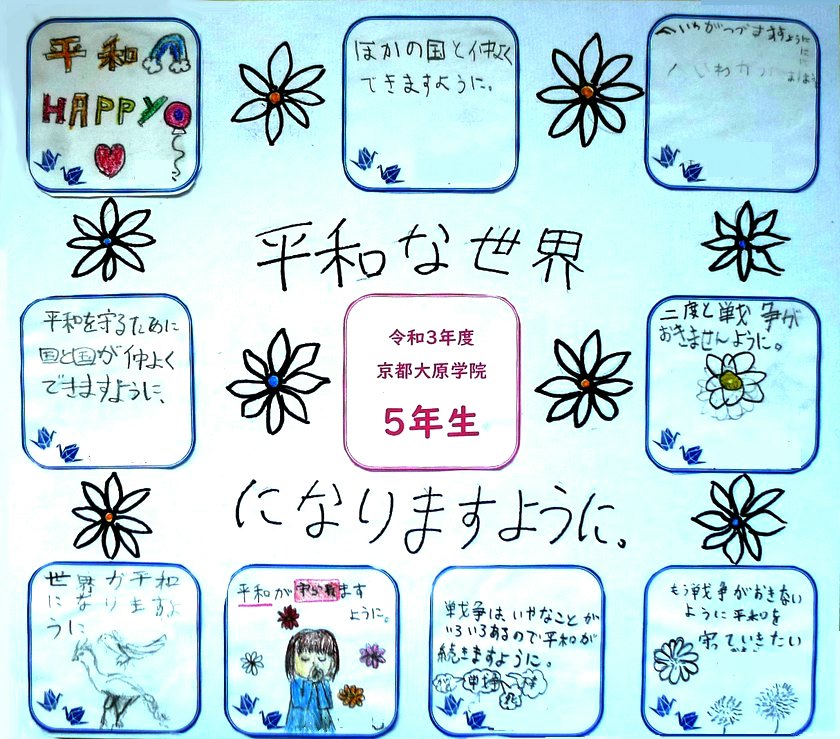 平和
HAPPY
ほかの国と仲よく
できますように。
へいわがつづきますように
平和な世界
平和を守るために
国と国が仲よく
できますように、
令和3年度
京都大原学院
5年生
二度と戦争が
おきませんように。
になりますように。
世界が平和
になりますよ
うに
平和が
ます
ように。
戦争はいやなことが
いろいろあるので平和が
続きますように。
もう戦争がおきない
ように平和を
守っていきたい